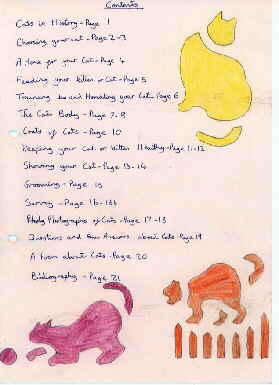 Contents
Cats in History - Page 1
Choosing your cat - Page 2-3
A Home for your Cat - Page 4
Feeding your kitten or Cat - Page 5
Training and Handling your Cat - Page 6
The Cats Body - Page 7-9
Coats of Cats - Page 10
Keeping your Cat or kitten Healthy - Page 11-12
Showing your Cat - Page 13-14
Grooming - Page 15
Survey - Page 16-16b
Photographs of Cats - Page 17-18
Questions and Answers about Cats - Page 19
A Poem about Cats - Page 20
Bibliography - Page 21